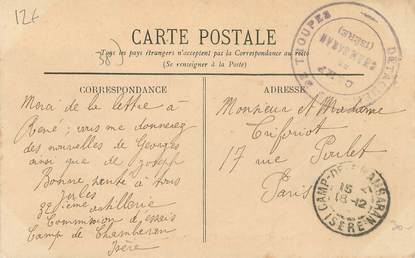 12€
38)
CARTE POSTALE
Tous les pays étrangers n'acceptent pas la Correspondance au recto
(Se renseigner à la Poste)
CORRESPONDANCE
Merci de la lettre à
René ; vous me donnerez
des nouvelles de Georges
ainsi que de Joseph
Bonne santé à tous
Jules
32ième artillerie
Commission d'essais
Camp de Chambaran
Isère
DÉTACHEMENT DE TROUPES
CAMP
DE
CHAMBARAN
(ISÈRE)
ADRESSE
Monsieur et Madame
17 rue Poulet
Paris
CAMP-DE-CHAMBARAN
18-12
ISÈRE